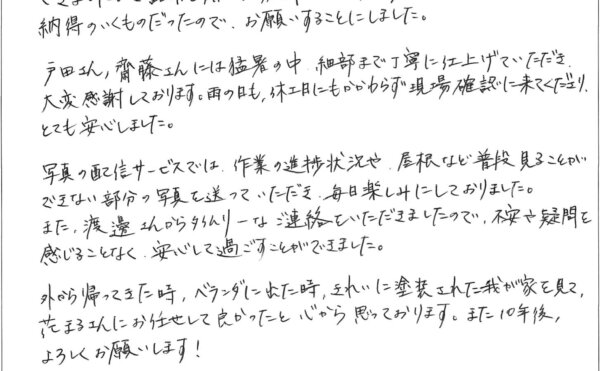 納得のいくものだったので、お願いすることにしました。
戸田さん、齋藤さんには猛暑の中、細部まで丁寧に仕上げていただき、
大変感謝しております。雨の日も、休工日にもかかわらず現場確認に来てくださり、
とても安心しました。
写真の配信サービスでは、作業の進捗状況や、屋根など普段見ることが
できない部分の写真を送っていただき、毎日楽しみにしておりました。
また、渡邊さんからタイムリーなご連絡をいただきましたので、不安や疑問を
感じることなく、安心して過ごすことができました。
外から帰ってきた時、ベランダに出た時、きれいに塗装された我が家を見て、
花まるさんにお任せして良かったと心から思っております。また10年後、
よろしくお願いします！